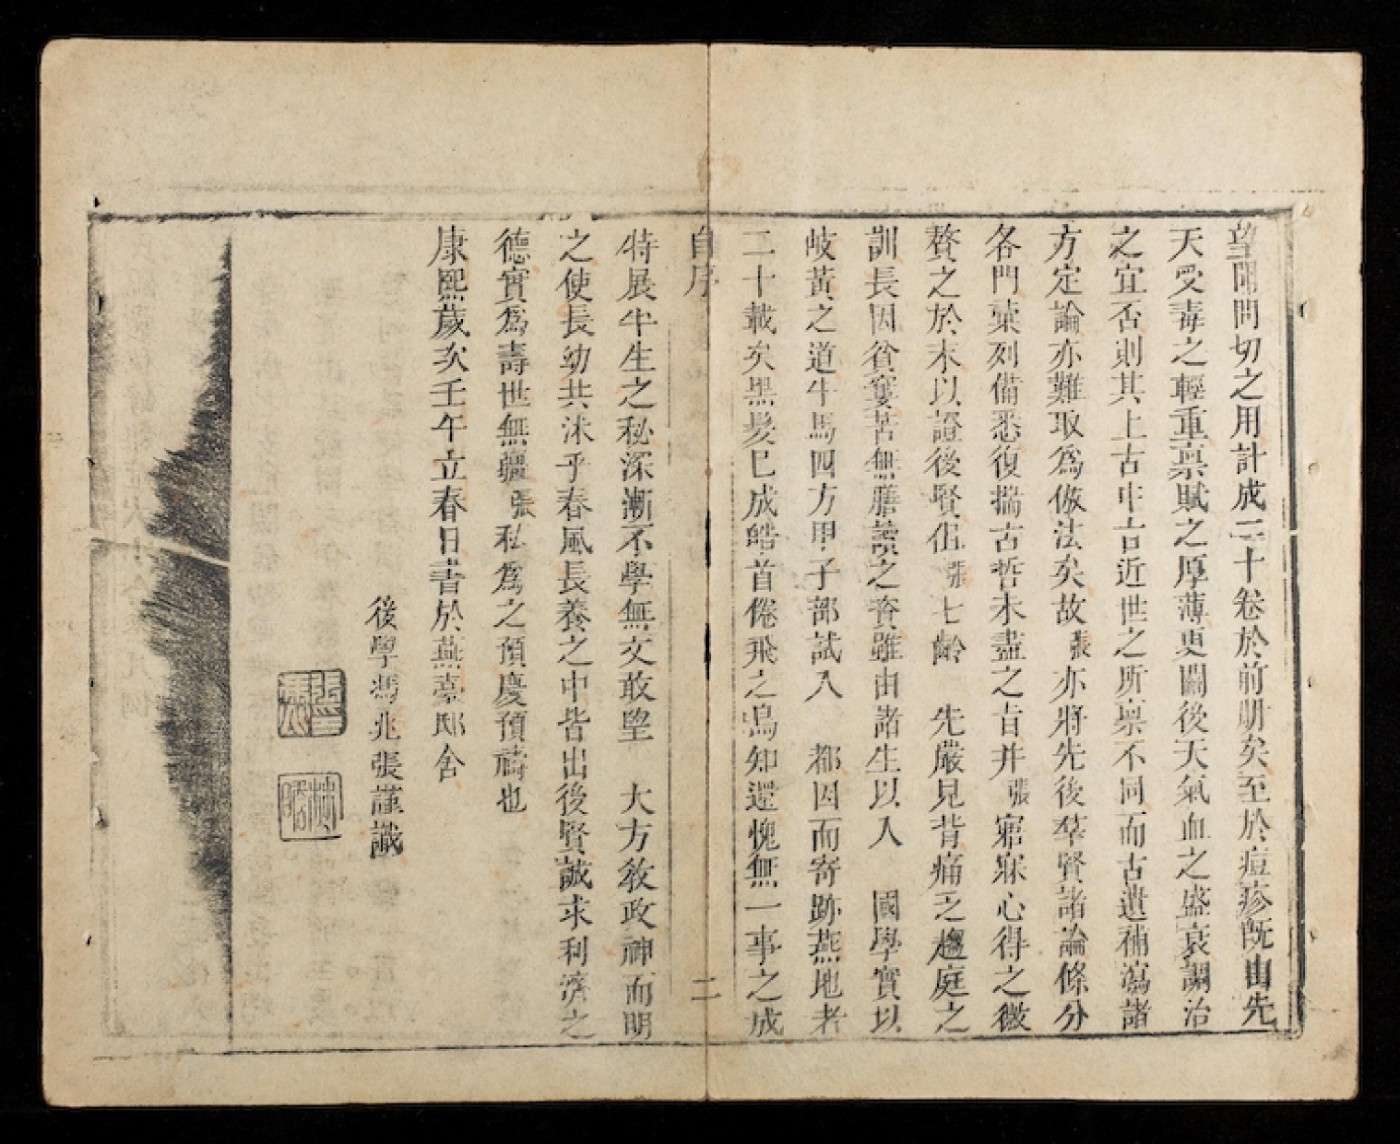 望聞問切之用計成二十卷於前册矣至於痘疹既由先
天受毒之輕重禀賦之厚薄更關後天氣血之盛衰調治
之宜否則其上古中古近世之所禀不同而古遺補瀉諸
方定論亦難取爲倣法矣故張亦將先後羣賢諸論條分
各門彙列備悉復揣古哲未盡之旨并張寤寐心得之微
贅之於末以證後賢但張七齡 先嚴見背痛乏趨庭之
訓長因貧窶苦無膳養之資雖由諸生以入 國學實以
岐黃之道牛馬四方甲子部試入 都因而寄跡燕地者
二十載矣黑髮已成皓首倦飛之鳥知還愧無一事之成
自序 二
特展半生之秘深慚不學無文敢望 大方敎政神而明
之使長幼共沐乎春風長養之中皆出後賢誠求利濟之
德實爲壽世無疆張私爲之預慶預禱也
康熙歲次壬午立春日書於燕臺邸舍
後學馮兆張謹識